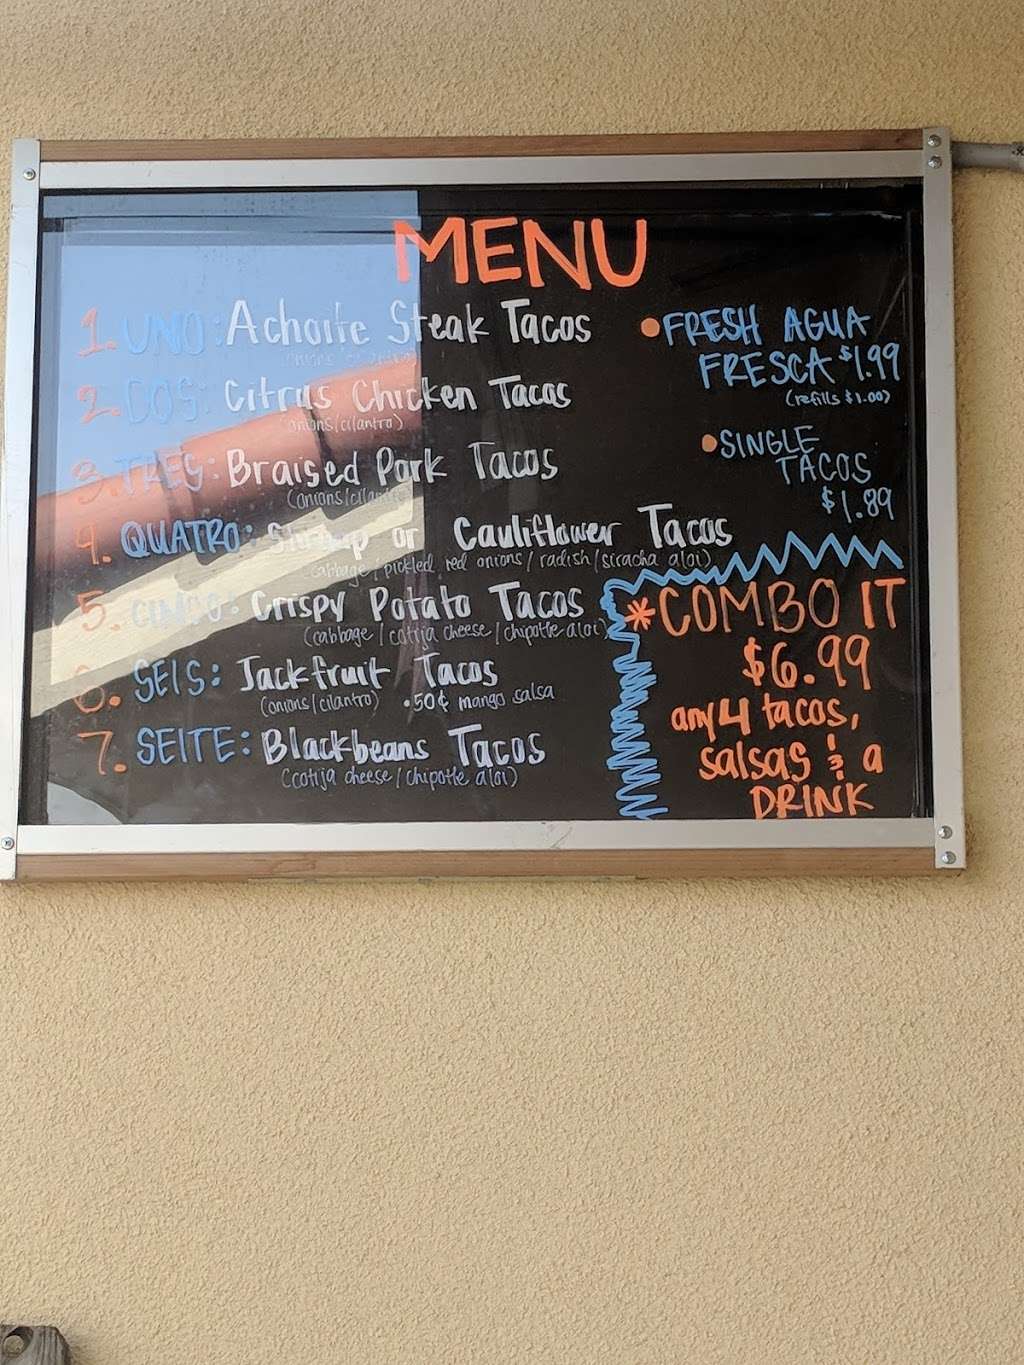 MENU
1. UNO: Achoite Steak Tacos
(onions/cilantro)
2. DOS: Citrus Chicken Tacos
(onions/cilantro)
3. TRES: Braised Pork Tacos
(onions/cilantro)
4. QUATRO: Shrimp or Cauliflower Tacos
cabbage/pickled red onions/radish/siracha aloi)
5. CINCO: Crispy Potato Tacos
(cabbage/cotija cheese/chipotle aloi)
6. SEIS: Jackfruit Tacos
(onions/cilantro) •50¢ mango salsa
7. SEITE: Blackbeans Tacos
(cotija cheese/chipotle aloi)
• FRESH AGUA
FRESCA $1.99
(refills $1.00)
• SINGLE
TACOS
$1.89
*COMBO IT
$6.99
any 4 tacos,
salsas & a
DRINK